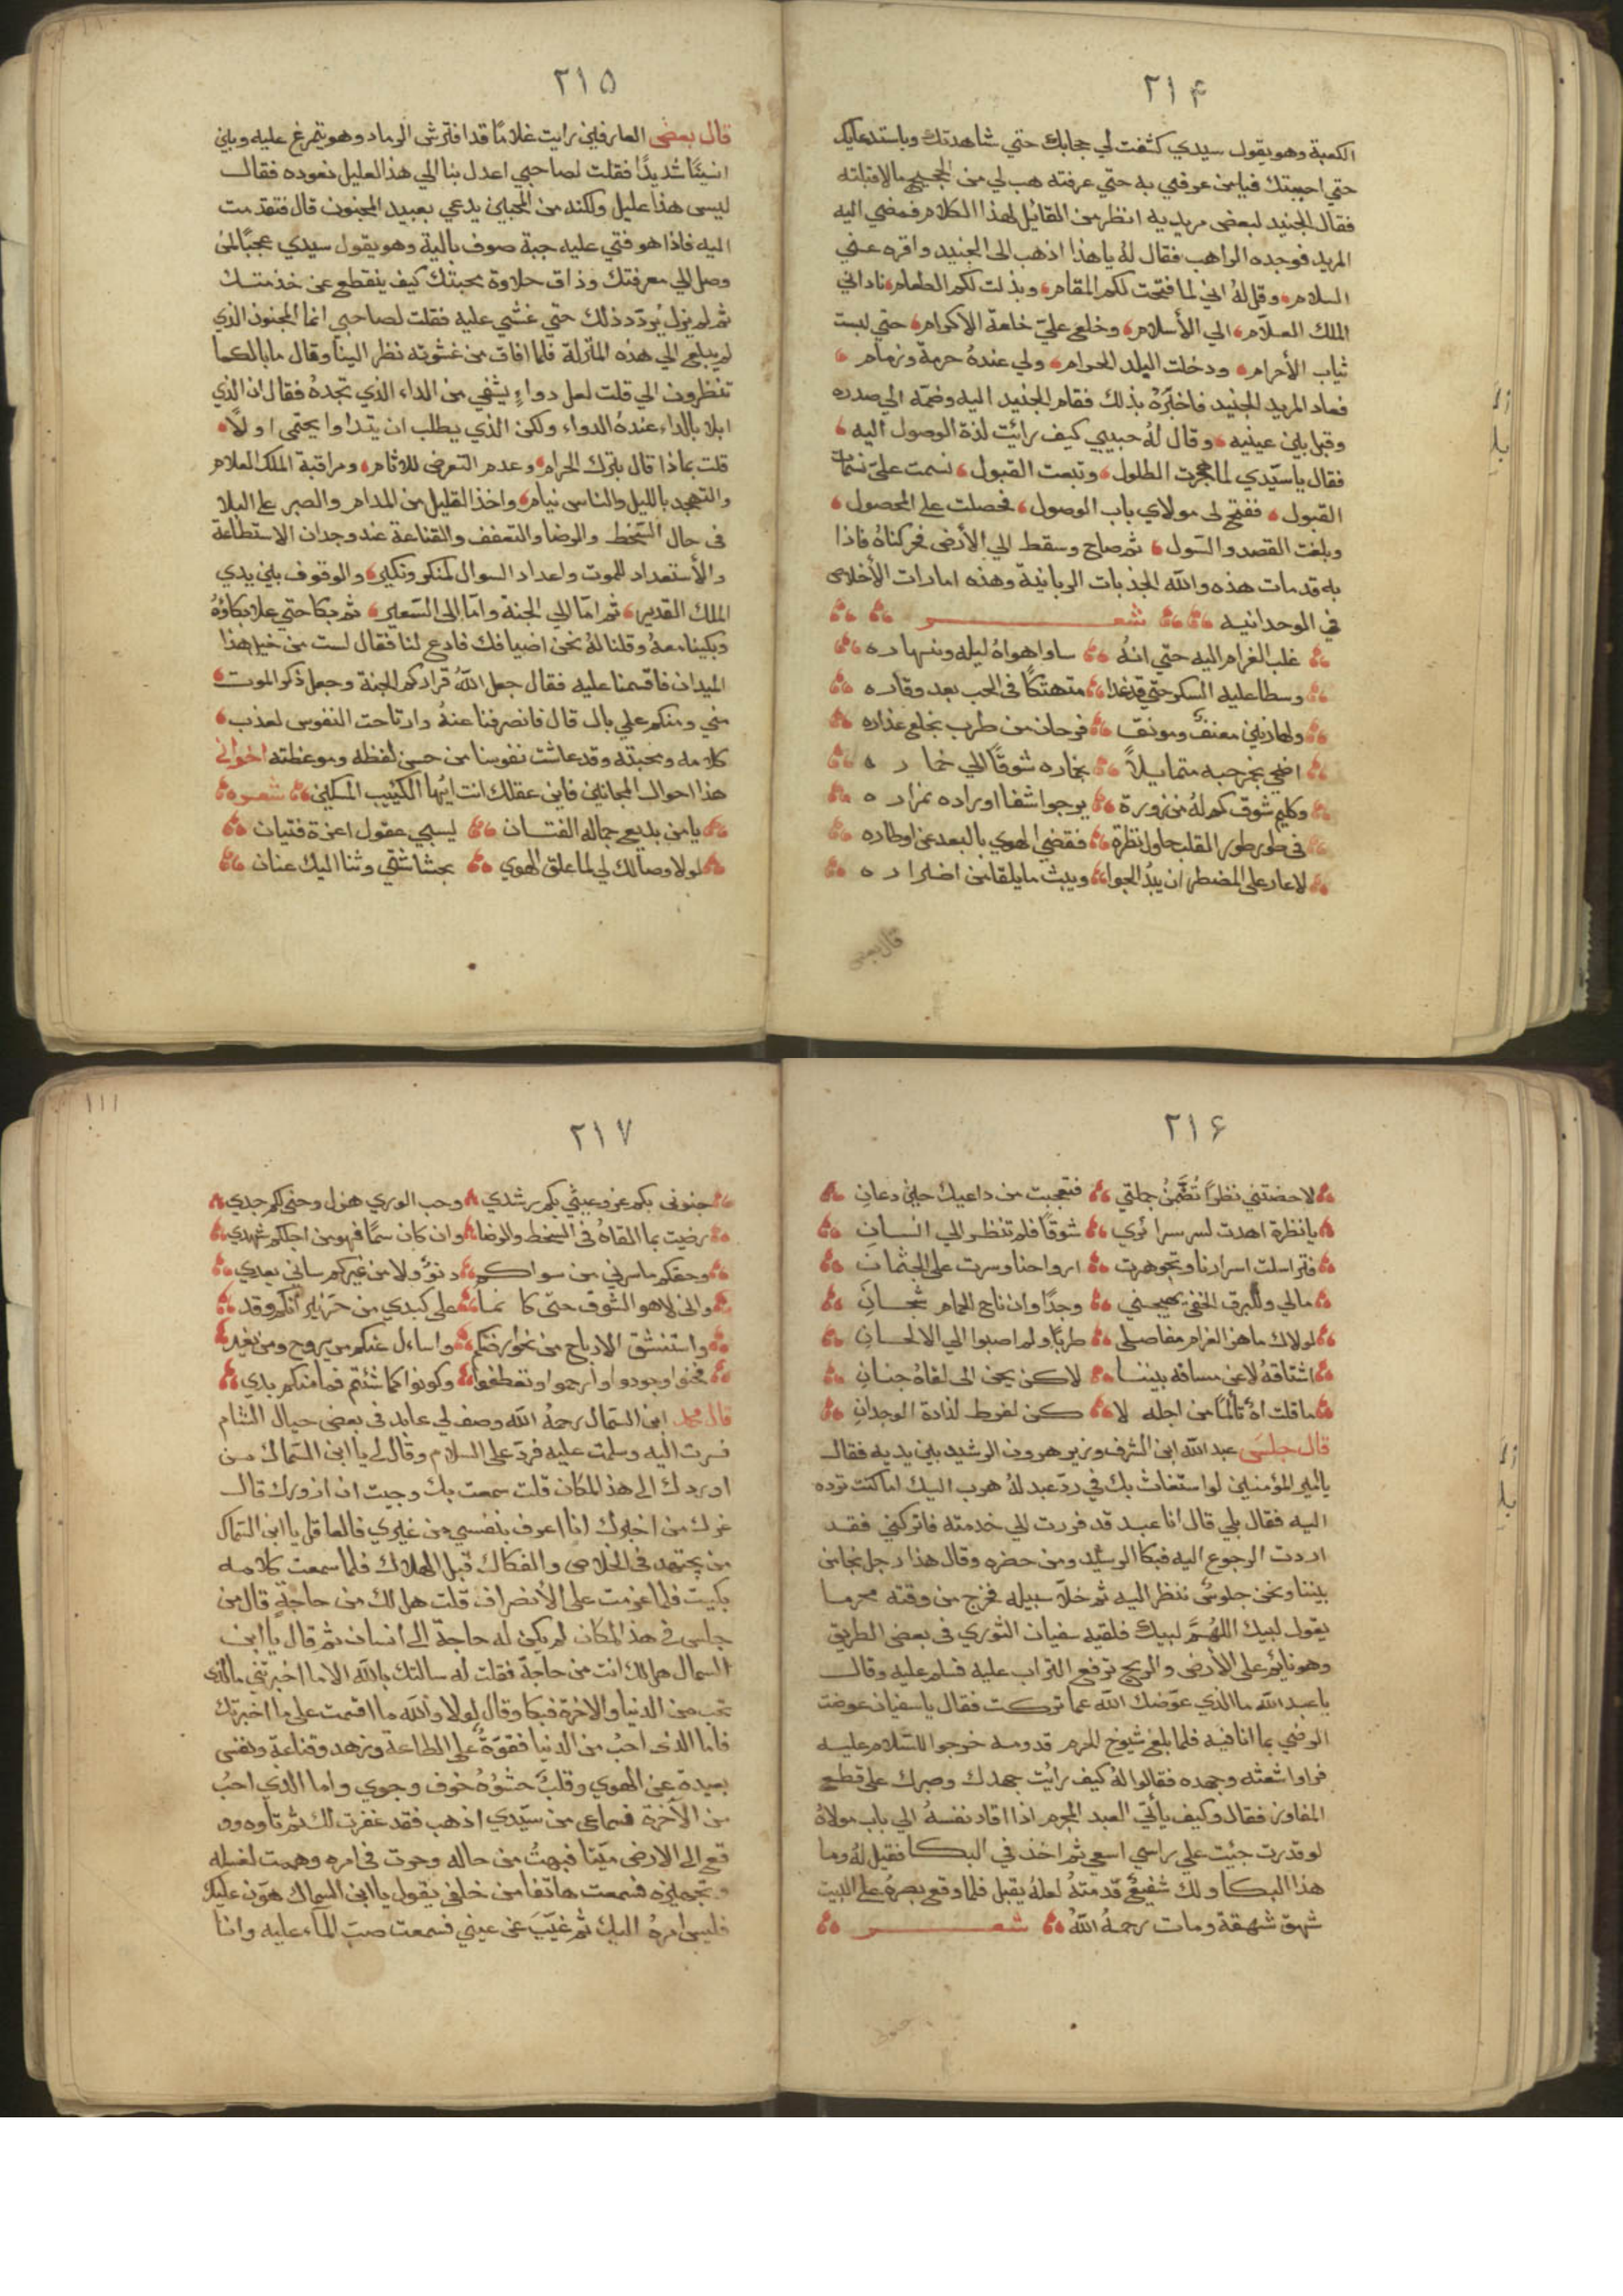 ٢١۴
الكعبة وهو يقول سيدي كشفت لي حجابك حتي شاهدتك وباستدعايك
حتي احببتك فيامن عرفني به حتي عرفته هب لي من الحجيج مالا قبلته
فقال الجنيد لبعض مريديه انظر من القائل لهذا الكلام فمضي اليه
المريد فوجده الراهب فقال لهُ ياهذا اذهب الى الجنيد واقره عني
السلام، وقل لهُ اني لما فتحت لكم المقام، وبذلت لكم الطعام، ناداني
الملك العلاّم، الي الأسلام، وخلع عليّ خلعة الاكرام، حتي لبست
ثياب الأحرام، ودخلت البلد الحرام، ولي عندهُ حرمة وزمام،
فعاد المريد الجنيد فاخبرهُ بذلك فقام الجنيد اليه وضمه الي صدره
وقبل بين عينيه، وقال لهُ حبيبي كيف رائيت لذة الوصول اليه،
فقال ياسيّدي لما هجرت الطلول، وتبعت القبول، نسمت عليّ نسمات
القبول، ففتح لى مولاي باب الوصول، فحصلت على المحصول،
وبلغت القصد والسّول، ثم صاح وسقط الي الأرض فحركناهُ فاذا
به قد مات هذه والله الجذبات الربانية وهذه امارات الأخلاص
في الوحدانيه شعر
غلب الغرام اليه حتي انهُ ساوا هواهُ ليله ونهاره
وسطا عليه السكر حتي قد غدا متهتكًا فى الحب بعد وقاره
ولها زين معنف ومونف فرحان من طرب بخلع عذاره
اضحي بخرحبه متمايلاً بخماره شوقًا الي خماره
وكليم شوق كم لهُ من زورة يرجوا شفا اوراده بمزاره
فى طور طور القلب حاول نظرة فقضي الهوي بالبعد عن اوطاره
لاعار على المضطر ان يبدُ الجوا ويبث مايلقا من اضراره
قال بعض
٢١۵
قال بعض العارفين رايت غلامًا قد افترش الرماد وهو يتمرغ عليه ويئن
انينًا شديدًا فقلت لصاحبي اعدل بنا الي هذا العليل نعوده فقال
ليس هذا عليل ولكنه من المحبين يدعي بعبيد المجنون قال فتقدمت
اليه فاذا هو فتي عليه جبة صوف بالية وهو يقول سيدي عجبًا لمن
وصل الي معرفتك وذاق حلاوة محبتك كيف ينقطع عن خدمتك
ثم لم يزل يردّد ذلك حتي غشي عليه فقلت لصاحبي انما المجنون الذي
لم يبلغ الي هذه المنزلة فلما افاق من غشوته نظر الينا وقال مابالكما
تنظرون الي قلت لعل دواءٍ يشفي من الداء الذي تجدهُ فقال ان الذي
ابلا بالداء عندهُ الدواء ولكن الذي يطلب ان يتداوا يحتمى اولاً،
قلت بماذا قال بترك الحرام، وعدم التعرض للاثام، ومراقبة الملك العلام
والتهجد بالليل والناس نيام، واخذ القليل من المدام والصبر على البلا
فى حال السّخط والرضا والتعفف والقناعة عند وجدان الاستطاعة
والأستعداد للموت واعداد السوال لمنكر ونكير، والوقوف بين يدي
الملك القدير، ثم امّا الي الجنة وامّا الى السّعير، ثم بكا حتي علا بكاؤهُ
وبكينا معهُ وقلنا لهُ نحن اضيافك فادع لنا فقال لست من خيل هذا
الميدان فاقسمنا عليه فقال جعل اللهُ قراكم الجنة وجعل ذكر الموت،
مني ومنكم علي بال قال فانصرفنا عنهُ وارتاحت النفوس لعذب،
كلامه ومحبته وقد عاشت نفوسنا من حسن لفظه وموعظته اخواني
هذا احوال المجانين فاين عقلك انت ايّها الكئيب المسكين شعره
يامن بديع جماله الفتان يسبي عقول اعزة فتيان
لولا وصالك لي لما علق الهوي بحشاشتي وثنا اليك عنان
٢١۶
لاحضتني نظرًا تُضَمِّنُ جملتي فتعجبت من داعيك حين دعانِ
يانظرة اهدت لسر سرائري شوقًا فلم تنظر الي انسانِ
فتراسلت اسرارنا وتجوهرت ارواحنا وسرت على الجثمانِ
مالي وللبرق الخفي يهيجني وجدًا وان ناح الحمام شجانِ
لولاك ماهز الغرام مفاصلي طربًا ولم اصبوا الي الالحانِ
اشتاقهُ لاعن مسافه بيننا لاكن يحن الى لقاهُ جنانِ
ماقلت اهُ تألمًا من اجله لا كن لفرط لذاذة الوجدانِ
قال جلسَ عبد الله ابن الشرف وزير هرون الرشيد بين يديه فقال
يا أمير المؤمنين لو استغاث بك في ردّ عبد لهُ هرب اليك اما كنت ترده
اليه فقال بلي قال انا عبد قد فررت الي خدمته فاتركني فقد
اردت الرجوع اليه فبكا الرسيد ومن حضره وقال هذا رجل نجا من
بيننا ونحن جلوسٌ ننظر اليه ثم خلا سبيله فخرج من وقته محرما
يقول لبيك اللهُمَّ لبيك فلقيه سفيان الثوري فى بعض الطريق
وهو نايم على الأرض والريح ترفع التراب عليه فسلم عليه وقال
يا عبد الله ما الذي عوّضك الله عما تركت فقال ياسفيان عوضت
الرضي بما انا فيه فلما بلغ شيوخ الحرم قدومه خرجوا للسّلام عليه
فراوا شعثه وجهده فقالوا لهُ كيف رائت جهدك وصبرك على قطع
المفاوز فقال وكيف يأتي العبد المجرم اذا اقاد نفسهُ الي باب مولاهُ
لو قدرت جئت علي راسي اسعي ثم اخذ في البكا فقيل لهُ وما
هذا البكا ولك شفيعٌ قدمتهُ لعلهُ يقبل فلما وقع بصرهُ على البيت
شهق شهقة ومات رحمهُ اللهُ شعر
٢١٧
١١١
جنونى بكم عز وعيني بكم رشدي وحب الوري هزل وحبكم جدي
رضيت بما القاهُ فى السخط والرضا وان كان سمًا فهو من اجلكم شهدي
وحقكم ماسرني من سواكم دنوٌ ولا من غيركم ساني بعدي
وانى لاهو الشوق حتى كانما على كبدي من حرّ نيرانكم وقد
واستنشق الارياح من نحو رضكم واساءل عنكم من يروح ومن يغد
فحنوا وجودوا وارحموا وتعطفوا وكونوا كما شئتم فما منكم بدي
قال محمد ابن السّمال رحمهُ الله وصف لي عابد فى بعض جبال الشام
فسرت اليه وسلمت عليه فردّ على السلام وقال لى يا ابن السّماك من
اوردك الى هذا المكان قلت سمعت بك وجيت ان ازورك قال
غرك من اخبرك انا اعرف بنفسي من غيري فالعاقل يا ابن السّماك
من يجتهد فى الخلاص والفكاك قبل الهلاك فلما سمعت كلامه
بكيت فلما عزمت على الأنصراف قلت هل لك من حاجةٍ قال من
جلس فى هذا المكان لم يكن له حاجةٌ الى انسان ثم قال يا ابن
السمال هل لك انت من حاجة فقلت له سالتك بالله الا ما اخبرتني ما الذي
تحب من الدنيا والاخرة فبكا وقال لولا والله ما اقسمت على ما اخبرتك
فاما الذى احبُ من الدنيا فقوّةٌ على الطاعة وزهد وقناعة ونفس
بعيدة عن الهوي وقلبٌ حشوُهُ خوف وجوي واما الذي احبُ
من الآخرة فسماعى من سيّدي اذهب فقد غفرت لك ثم تاوه وو
قع الى الارض ميّتا فبهتُ من حاله وحرت فى امره وهممت لغسله
وتجهيزه فسمعت هاتفا من خلفى يقول يا ابن السماك هوّن عليك
فليس امرهُ اليك ثم غُيّبَ عن عيني فسمعت صبّ الماء عليه وانا